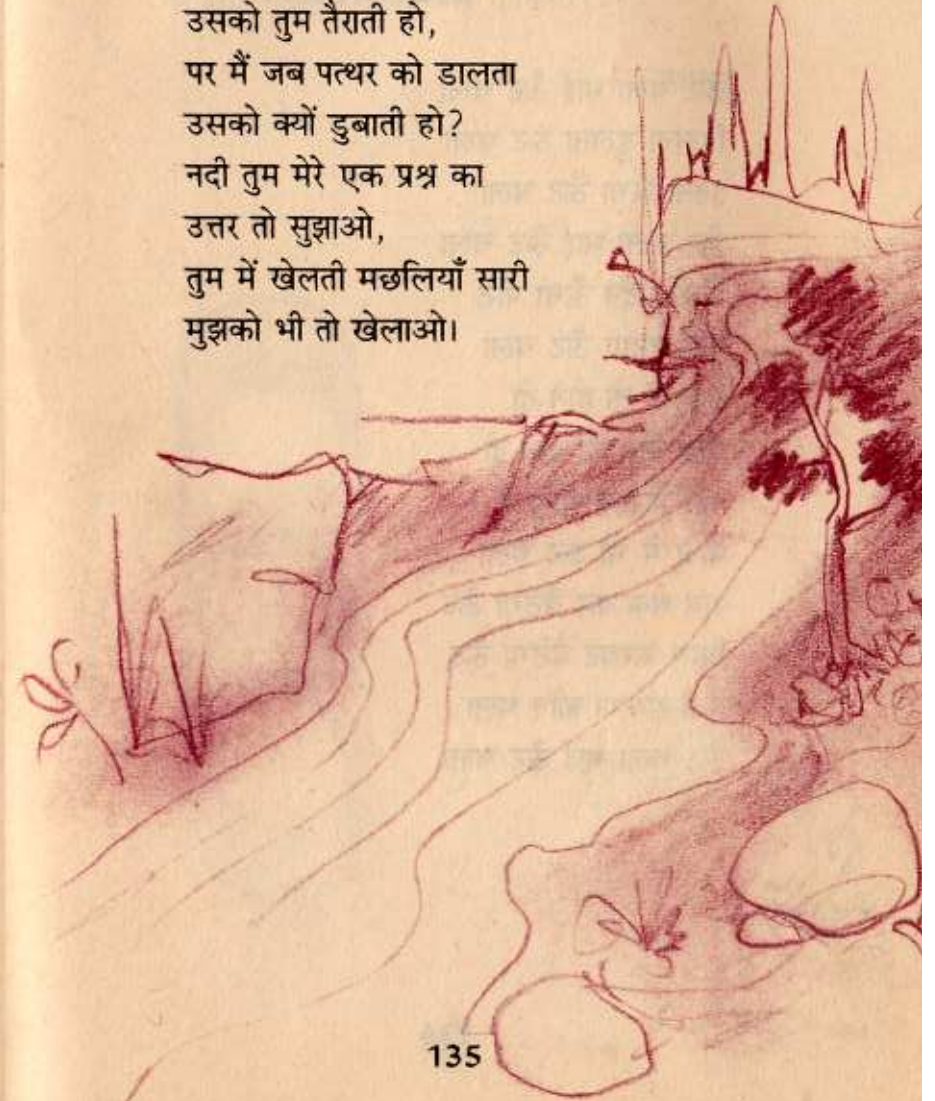 उसको तुम तैराती हो,
पर मैं जब पत्थर को डालता
उसको क्यों डुबाती हो?
नदी तुम मेरे एक प्रश्न का
उत्तर तो सुझाओ,
तुम में खेलती मछलियाँ सारी
मुझको भी तो खेलाओ।
135